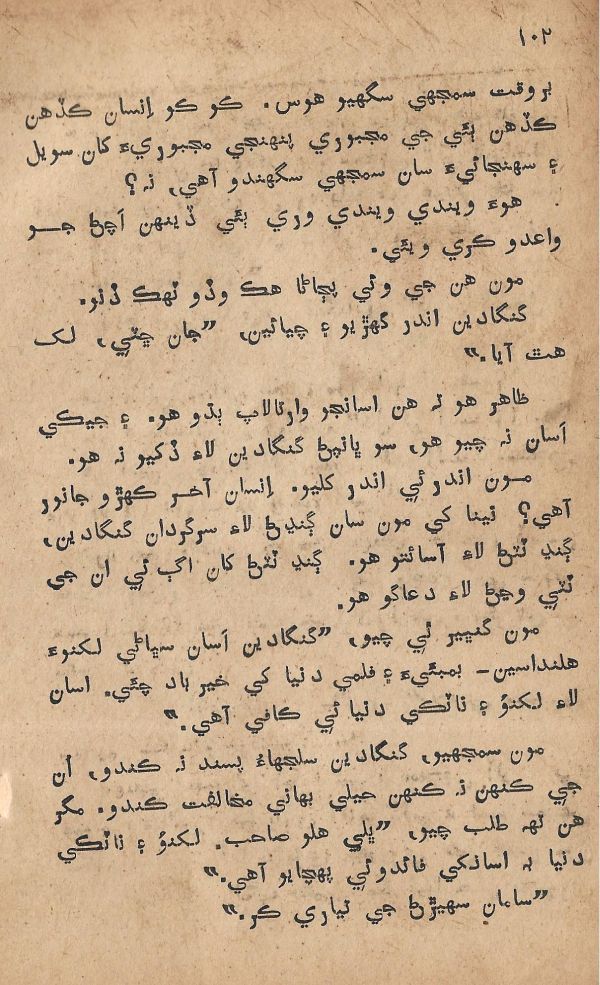 ١٠٢
بروقت سمجهي سگهيو هوس. ڪو ڪو اِنسان ڪڏهن
ڪڏهن ٻئي جي مجبوري پنهنجي مجبوريءَ کان سويل
۽ سهنجائيءَ سان سمجهي سگهندو آهي، نہ؟
هوءَ ويندي ويندي وري ٻئي ڏينهن اَچڻ جو
واعدو ڪري ويئي.
مون هن جي وئي پڄاڻا هڪ وڏو ٽهڪ ڏنو.
گنگادين اندر گهڙيو ۽ چيائين، ”جان ڇٽي، لک
هٿ آيا.“
ظاهر هو تہ هن اسانجو وارتالاپ ٻڌو هو. ۽ جيڪي
اَسان نہ چيو هو، سو ڀانپڻ گنگادين لاءِ ڏکيو نہ هو.
مون اندر ئي اندر کليو. اِنسان آخر ڪهڙو جانور
آهي؟ نينا کي مون سان ڳنڍڻ لاءِ سرگردان گنگادين،
ڳنڍ ٽٽڻ لاءِ آسائتو هو. ڳنڍ ٽٽڻ کان اڳ ئي ان جي
ٽٽي وڃڻ لاءِ دعاگو هو.
مون گنڀير ٿي چيو، ”گنگادين اَسان سڀاڻي لکنوءَ
هلنداسين– بمبئيءَ ۽ فلمي دنيا کي خير باد چئي. اسان
لاءِ لکنؤ ۽ ناٽڪي دنيا ئي ڪافي آهي.“
مون سمجهيو، گنگادين سلجهاءُ پسند نہ ڪندو، اُن
جي ڪنهن نہ ڪنهن حيلي بهاني مخالفت ڪندو. مگر
هن ٺهہ طلب چيو، ”ڀلي هلو صاحب. لکنؤ ۽ ناٽڪي
دنيا بہ اسانکي فائدوئي پهچايو آهي.“
”سامان سهيڙڻ جي تياري ڪر.“